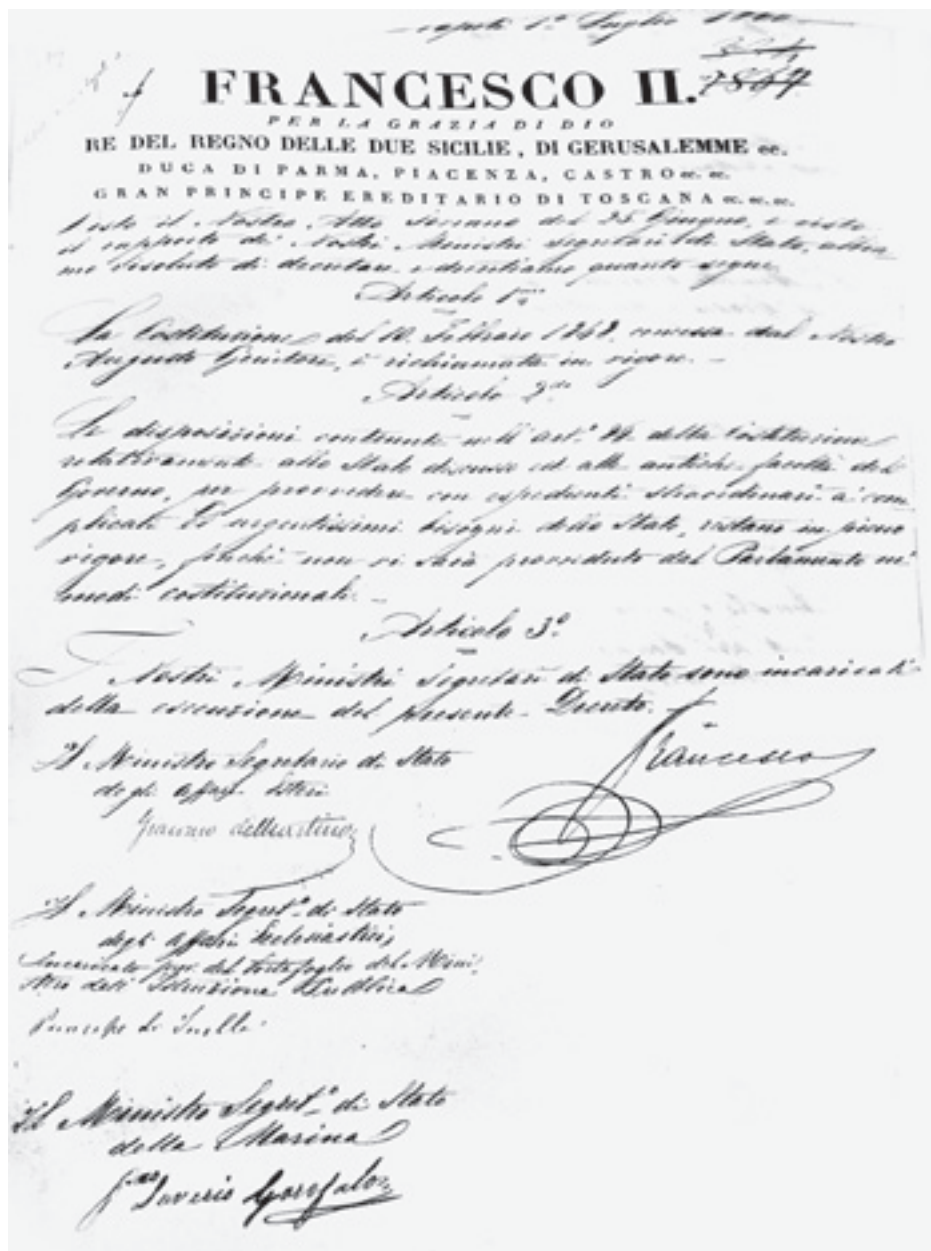 Napoli 1.º Luglio
FRANCESCO II.
PER LA GRAZIA DI DIO
RE DEL REGNO DELLE DUE SICILIE, DI GERUSALEMME ec.
DUCA DI PARMA, PIACENZA, CASTRO ec. ec.
GRAN PRINCIPE EREDITARIO DI TOSCANA ec. ec. ec.
Visto il Nostro Atto Sovrano del 25 Giugno, e visto
il rapporto de' Nostri Ministri segretari di Stato, abbia-
mo risoluto di decretare, e decretiamo quanto segue.
Articolo 1.
La Costituzione del 10. Febbraro 1848. concessa dal Nostro
Augusto Genitore, è richiamata in vigore. —
Articolo 2.do
Le disposizioni contenute nell'art.º della Costituzione
relativamente allo Stato discusso ed alle antiche facoltà del
Governo, per provvedere con espedienti straordinarî a' com-
plicati ed urgentissimi bisogni dello Stato, restano in pieno
vigore, finchè non vi sarà provveduto dal Parlamento ne'
modi costituzionali. —
Articolo 3.º
I Nostri Ministri Segretarî di Stato sono incaricati
della esecuzione del presente Decreto.
Francesco
Il Ministro Segretario di Stato
degli Affari Esteri
de Martino
Il Ministro Segret.º di Stato
degli Affari Ecclesiastici,
incaricato del Portafoglio del Mini-
stero dell'Istruzione Pubblica
Principe di
Il Ministro Segret.º di Stato
della Marina
Saverio Garofalo